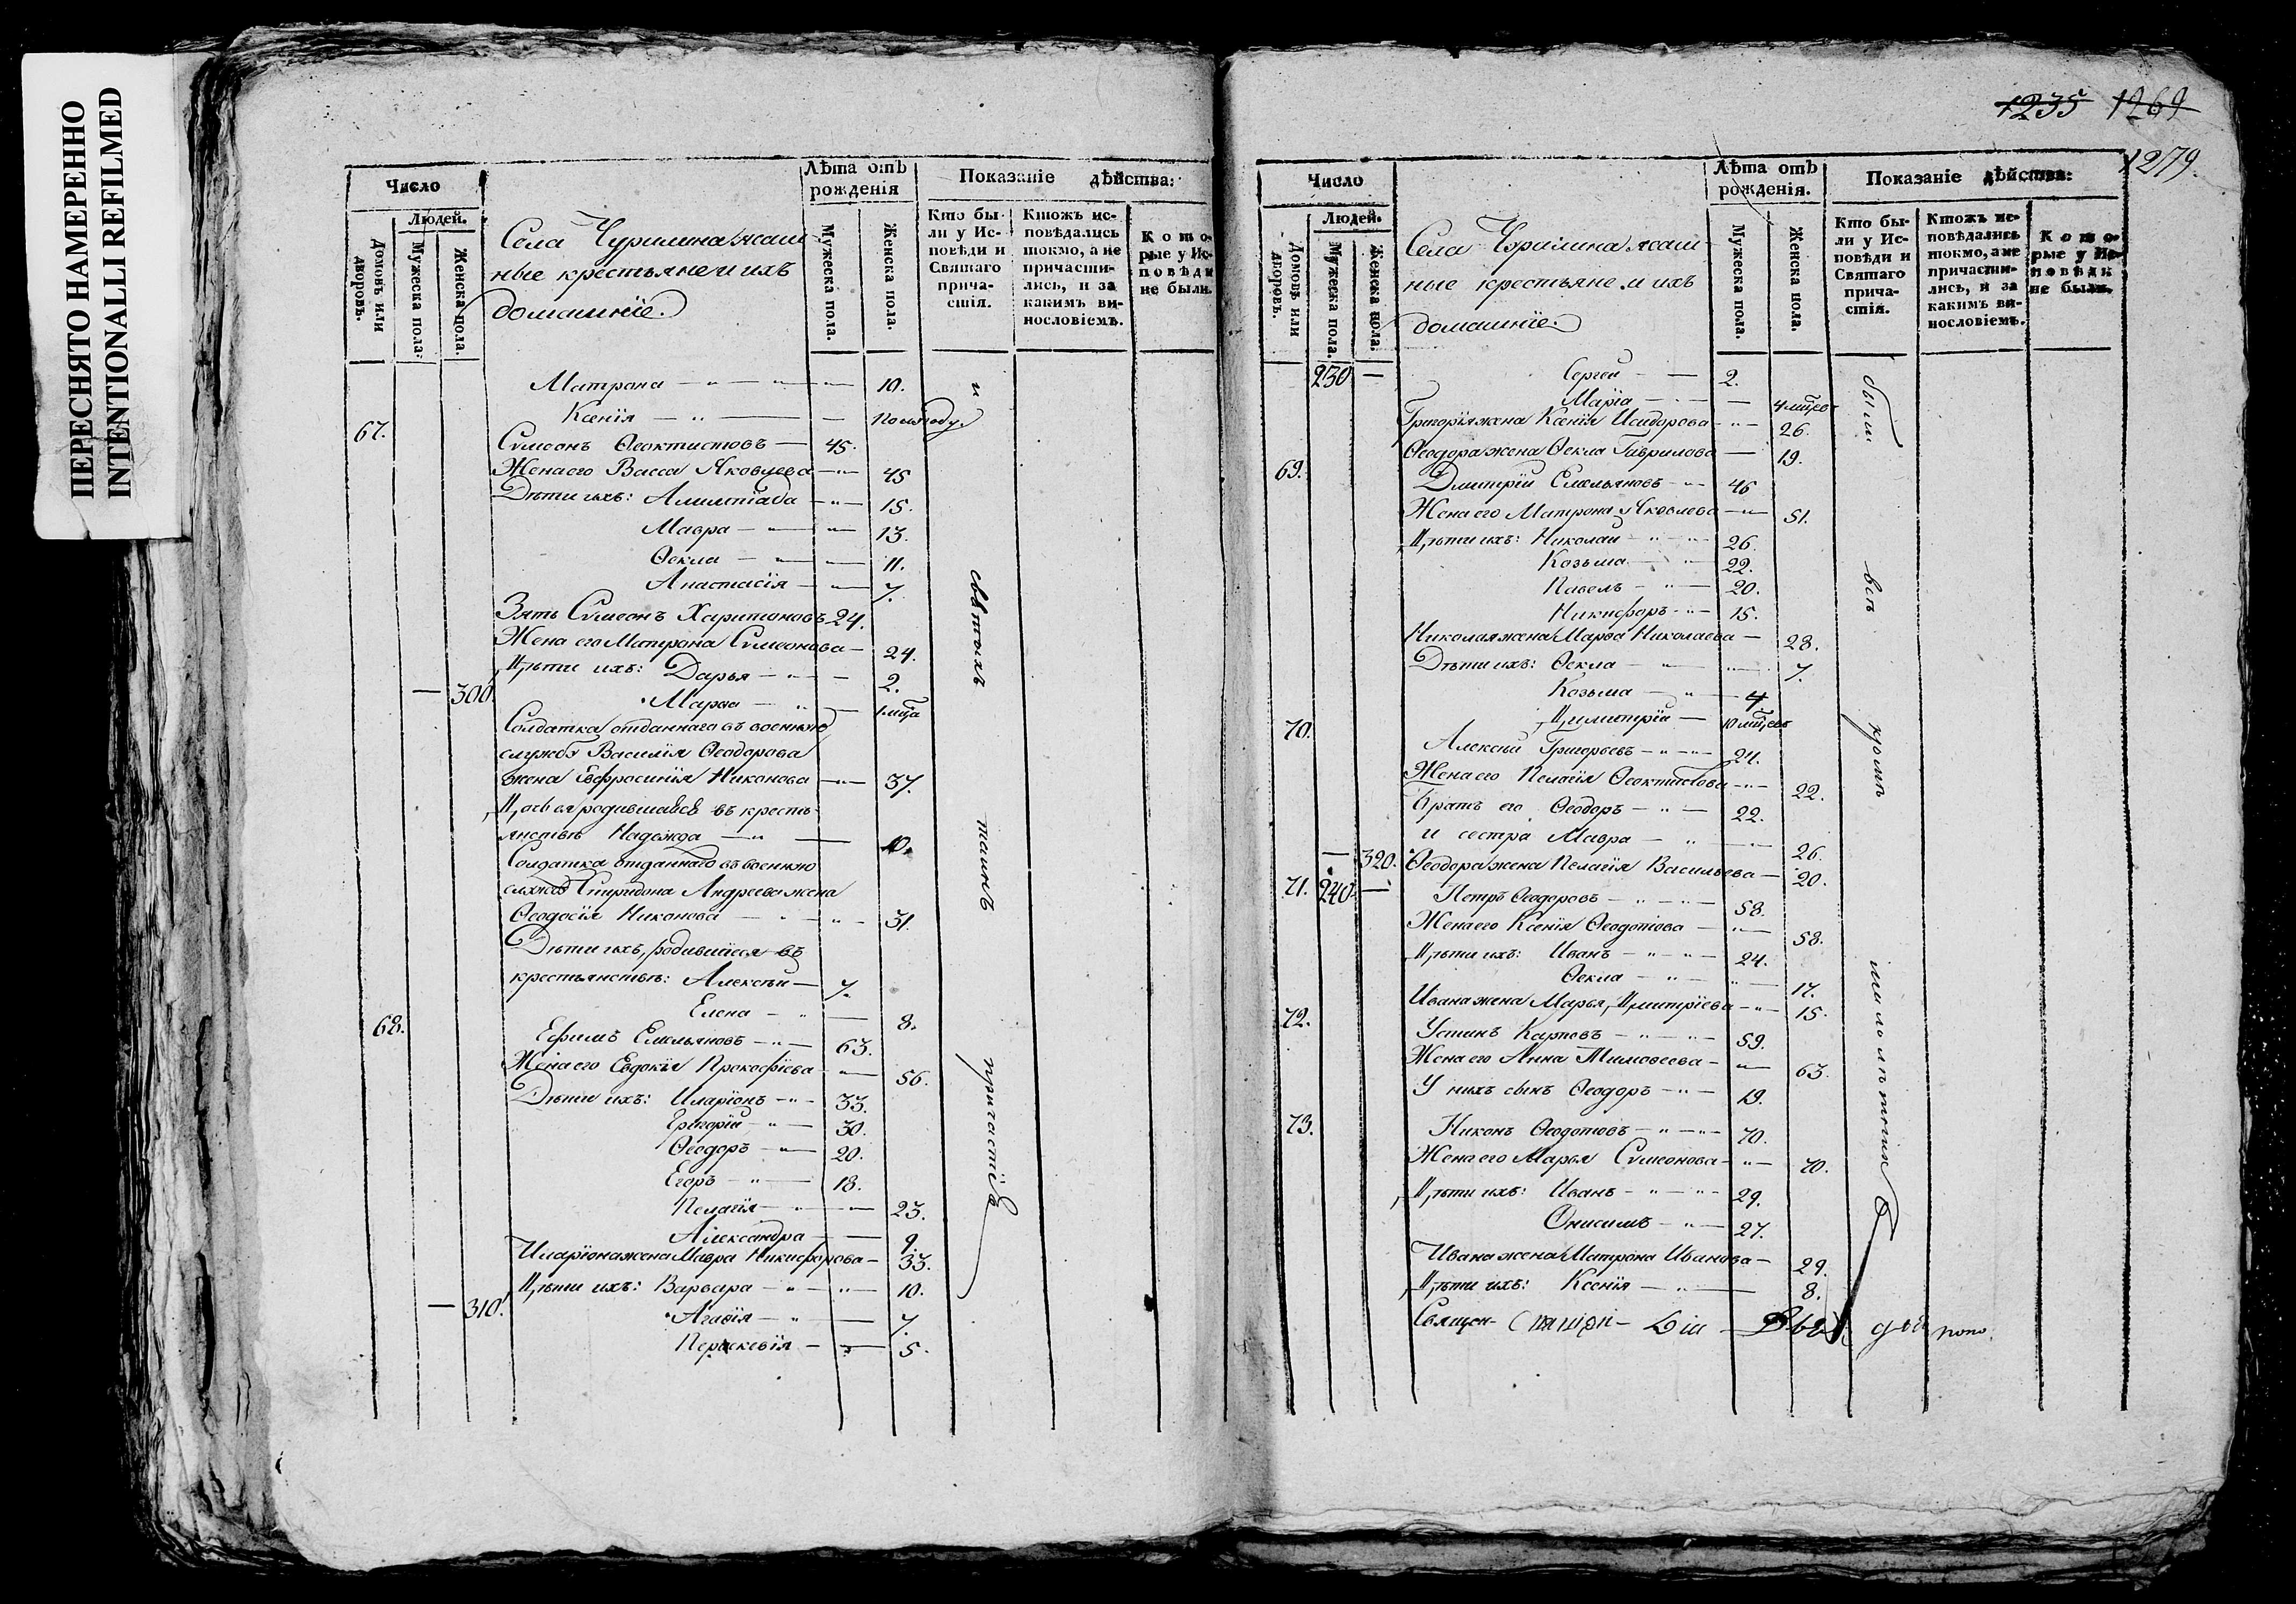 ПЕРЕСНЯТО НАМЕРЕННО
INTENTIONALLI REFILMED
Число
Людей.
Домовъ или дворовъ.
Мужеска пола.
Женска пола.
Села Чурилина яшаш-
ные крестьяне и ихъ
домашніе.
Лѣта отъ рожденія
Мужеска пола.
Женска пола.
Показаніе дѣйства:
Кто бы-
ли у Ис-
повѣди и
Святаго
прича-
стія.
Ктожъ ис-
повѣдались
токмо, а не
причасти-
лись, и за
какимъ ви-
нословіемъ.
Кото-
рые у Ис-
повѣди
не были.
Матрона 10.
Ксенія полгоду
67. Сумеонъ Ѳеоктистовъ 45.
Жена его Васса Яковлева 45
Дѣти ихъ: Алимпіада 15.
Мавра 13.
Ѳекла 11.
Анастасія 7.
Зять Сумеонъ Харитоновъ 24.
Жена его Матрона Сумеонова 24.
Дѣти ихъ: Дарья 2.
300. Марѳа 1 мца
Солдатка отданнаго въ военную
службу Василія Ѳеодорова
жена Евфросинія Никонова 37.
Дочь ея родившаяся въ кресть-
янствѣ Надежда 10.
Солдатка отданнаго въ военную
службу Спиридона Андреева жена
Ѳеодосія Никонова 31.
Дѣти ихъ, родившіеся въ
крестьянствѣ: Алексѣй 7.
Елена 8.
68. Ефимъ Емельяновъ 63.
Жена его Евдокія Прокофіева 56.
Дѣти ихъ: Иларіонъ 33.
Григорій 30.
Ѳеодоръ 20.
Егоръ 18.
Пелагія 23.
Александра 9.
Иларіона жена Мавра Никифорова 33.
Дѣти ихъ: Варвара 10.
310. Агаѳія 7.
Параскевія 5.
и святыхъ таинъ причастіе
1235 1269
1279.
Число
Людей.
Домовъ или дворовъ.
Мужеска пола.
Женска пола.
Села Чурилина яшаш-
ные крестьяне и ихъ
домашніе.
Лѣта отъ рожденія.
Мужеска пола.
Женска пола.
Показаніе дѣйства:
Кто бы-
ли у Ис-
повѣди и
Святаго
прича-
стія.
Ктожъ ис-
повѣдались
токмо, а не
причасти-
лись, и за
какимъ ви-
нословіемъ.
Кото-
рые у Ис-
повѣди
не были.
230 Сергей 2.
Марія 4 мцев
Григорія жена Ксенія Исидорова 26.
Ѳеодора жена Ѳекла Гаврилова 19.
69. Дмитрій Емельяновъ 46
Жена его Матрона Яковлева 51.
Дѣти ихъ: Николай 26.
Козьма 22.
Павелъ 20.
Никифоръ 15.
Николая жена Марѳа Николаева 28.
Дѣти ихъ: Ѳекла 7.
Козьма 4
Димитрій 10 мцев
70. Алексѣй Григорьевъ 24.
Жена его Пелагія Ѳеоктистова 22.
Братъ его Ѳеодоръ 22.
и сестра Мавра 26.
320. Ѳеодора жена Пелагія Васильева 20.
71. 240. Петръ Ѳеодоровъ 58.
Жена его Ксенія Ѳеодотова 58.
Дѣти ихъ: Иванъ 24.
Ѳекла 17.
Ивана жена Марья Дмитріева 15.
72. Устинъ Карповъ 59.
Жена его Анна Тимоѳеева 63.
У нихъ сынъ Ѳеодоръ 19.
73. Никонъ Ѳеодотовъ 70.
Жена его Марья Сумеонова 70.
Дѣти ихъ: Иванъ 29.
Онисимъ 27.
Ивана жена Матрона Иванова 29.
Дѣти ихъ: Ксенія 8.
были всѣ кромѣ малолѣтних
Священ-